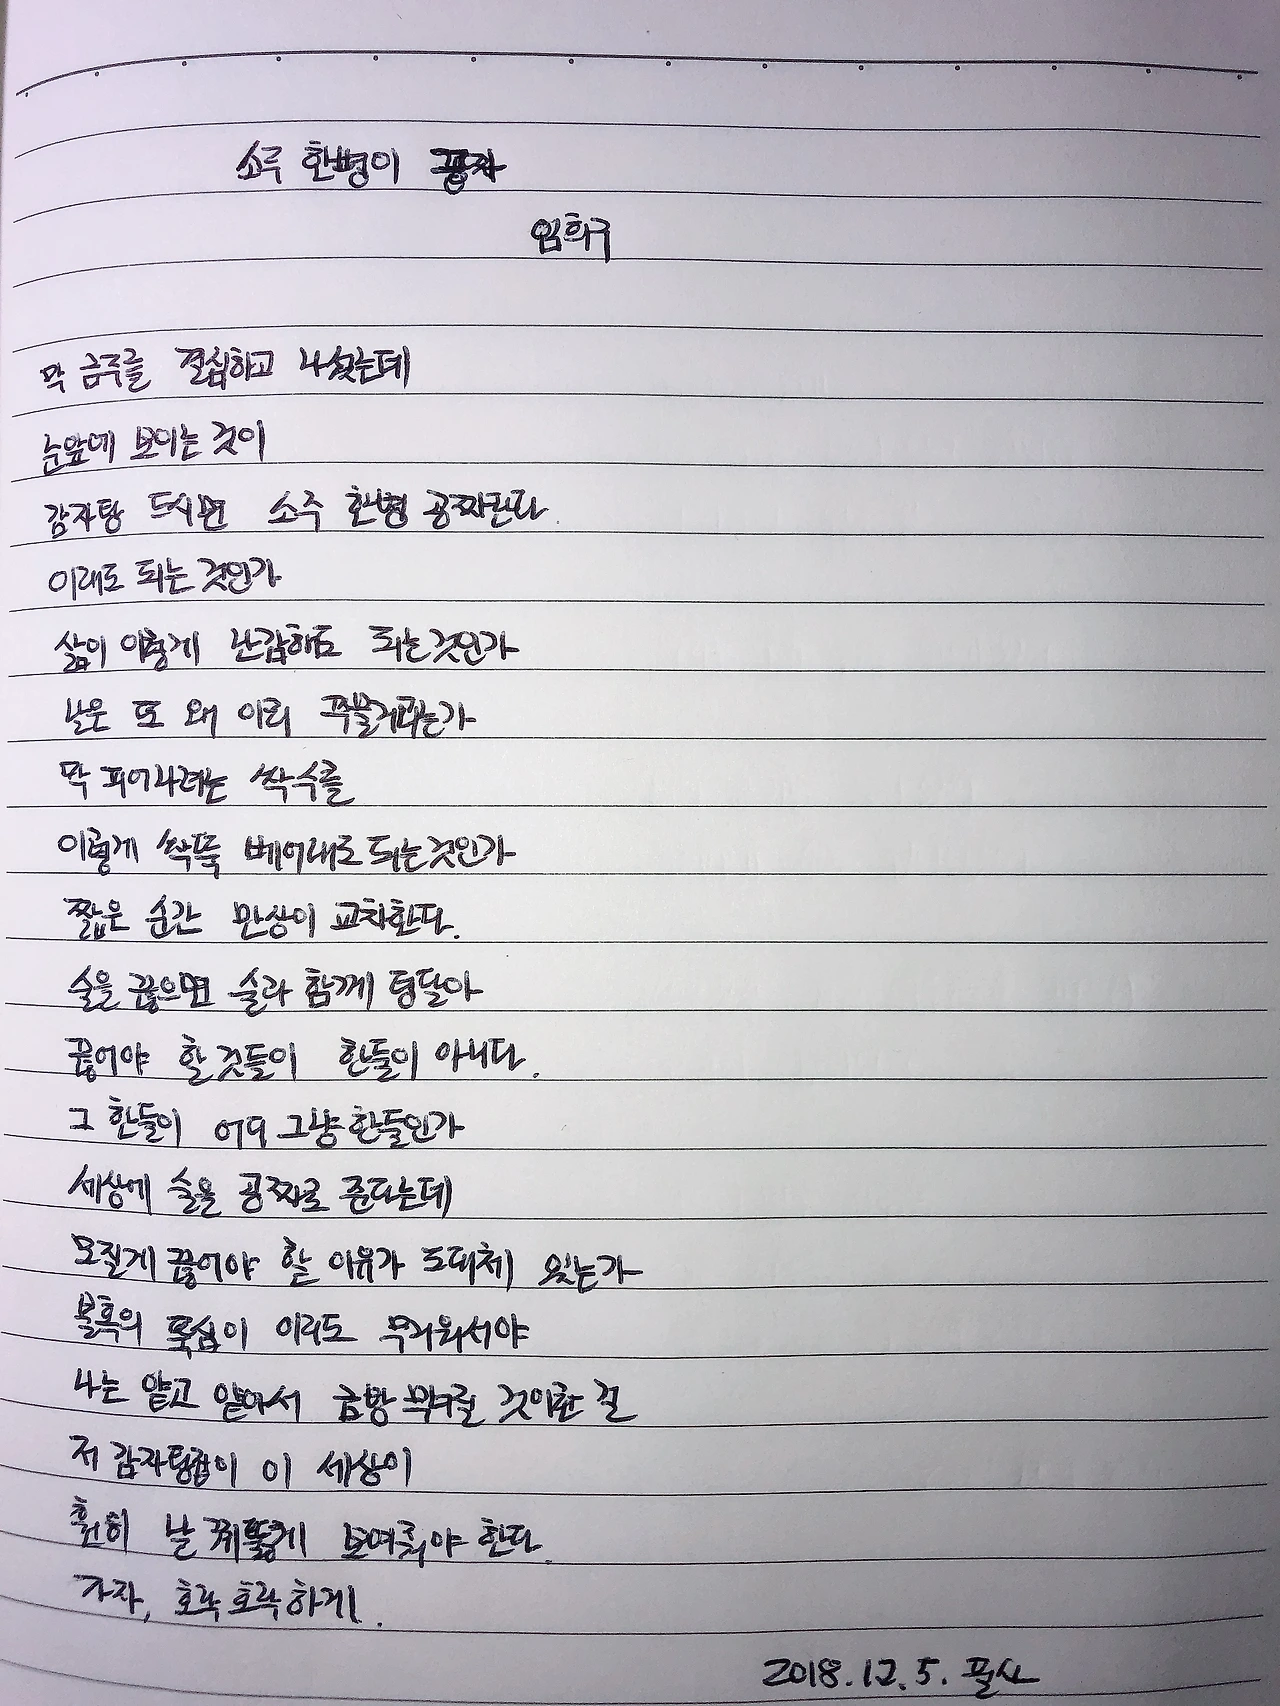 소주 한병이 공짜
임희구
막 금주를 결심하고 나섰는데
눈앞에 보이는 것이
감자탕 드시면 소주 한병 공짜란다
이래도 되는 것인가
삶이 이렇게 난감해도 되는것인가
날은 또 왜 이리 꾸물거리는가
막 피어나려는 싹수를
이렇게 싹뚝 베어내도 되는것인가
짧은 순간 만상이 교차한다.
술을 끊으면 술과 함께 덩달아
끊어야 할 것들이 한둘이 아니다.
그 한둘이 어디 그냥 한둘인가
세상에 술을 공짜로 준다는데
모질게 끊어야 할 이유가 도대체 있는가
불혹의 뚝심이 이리도 무거워서야
나는 얕고 얕아서 금방 무너질 것이란 걸
저 감자탕집이 이 세상이
훤히 날 꿰뚫게 보여줘야 한다
가자, 호락호락하게.
2018.12.5. 필사